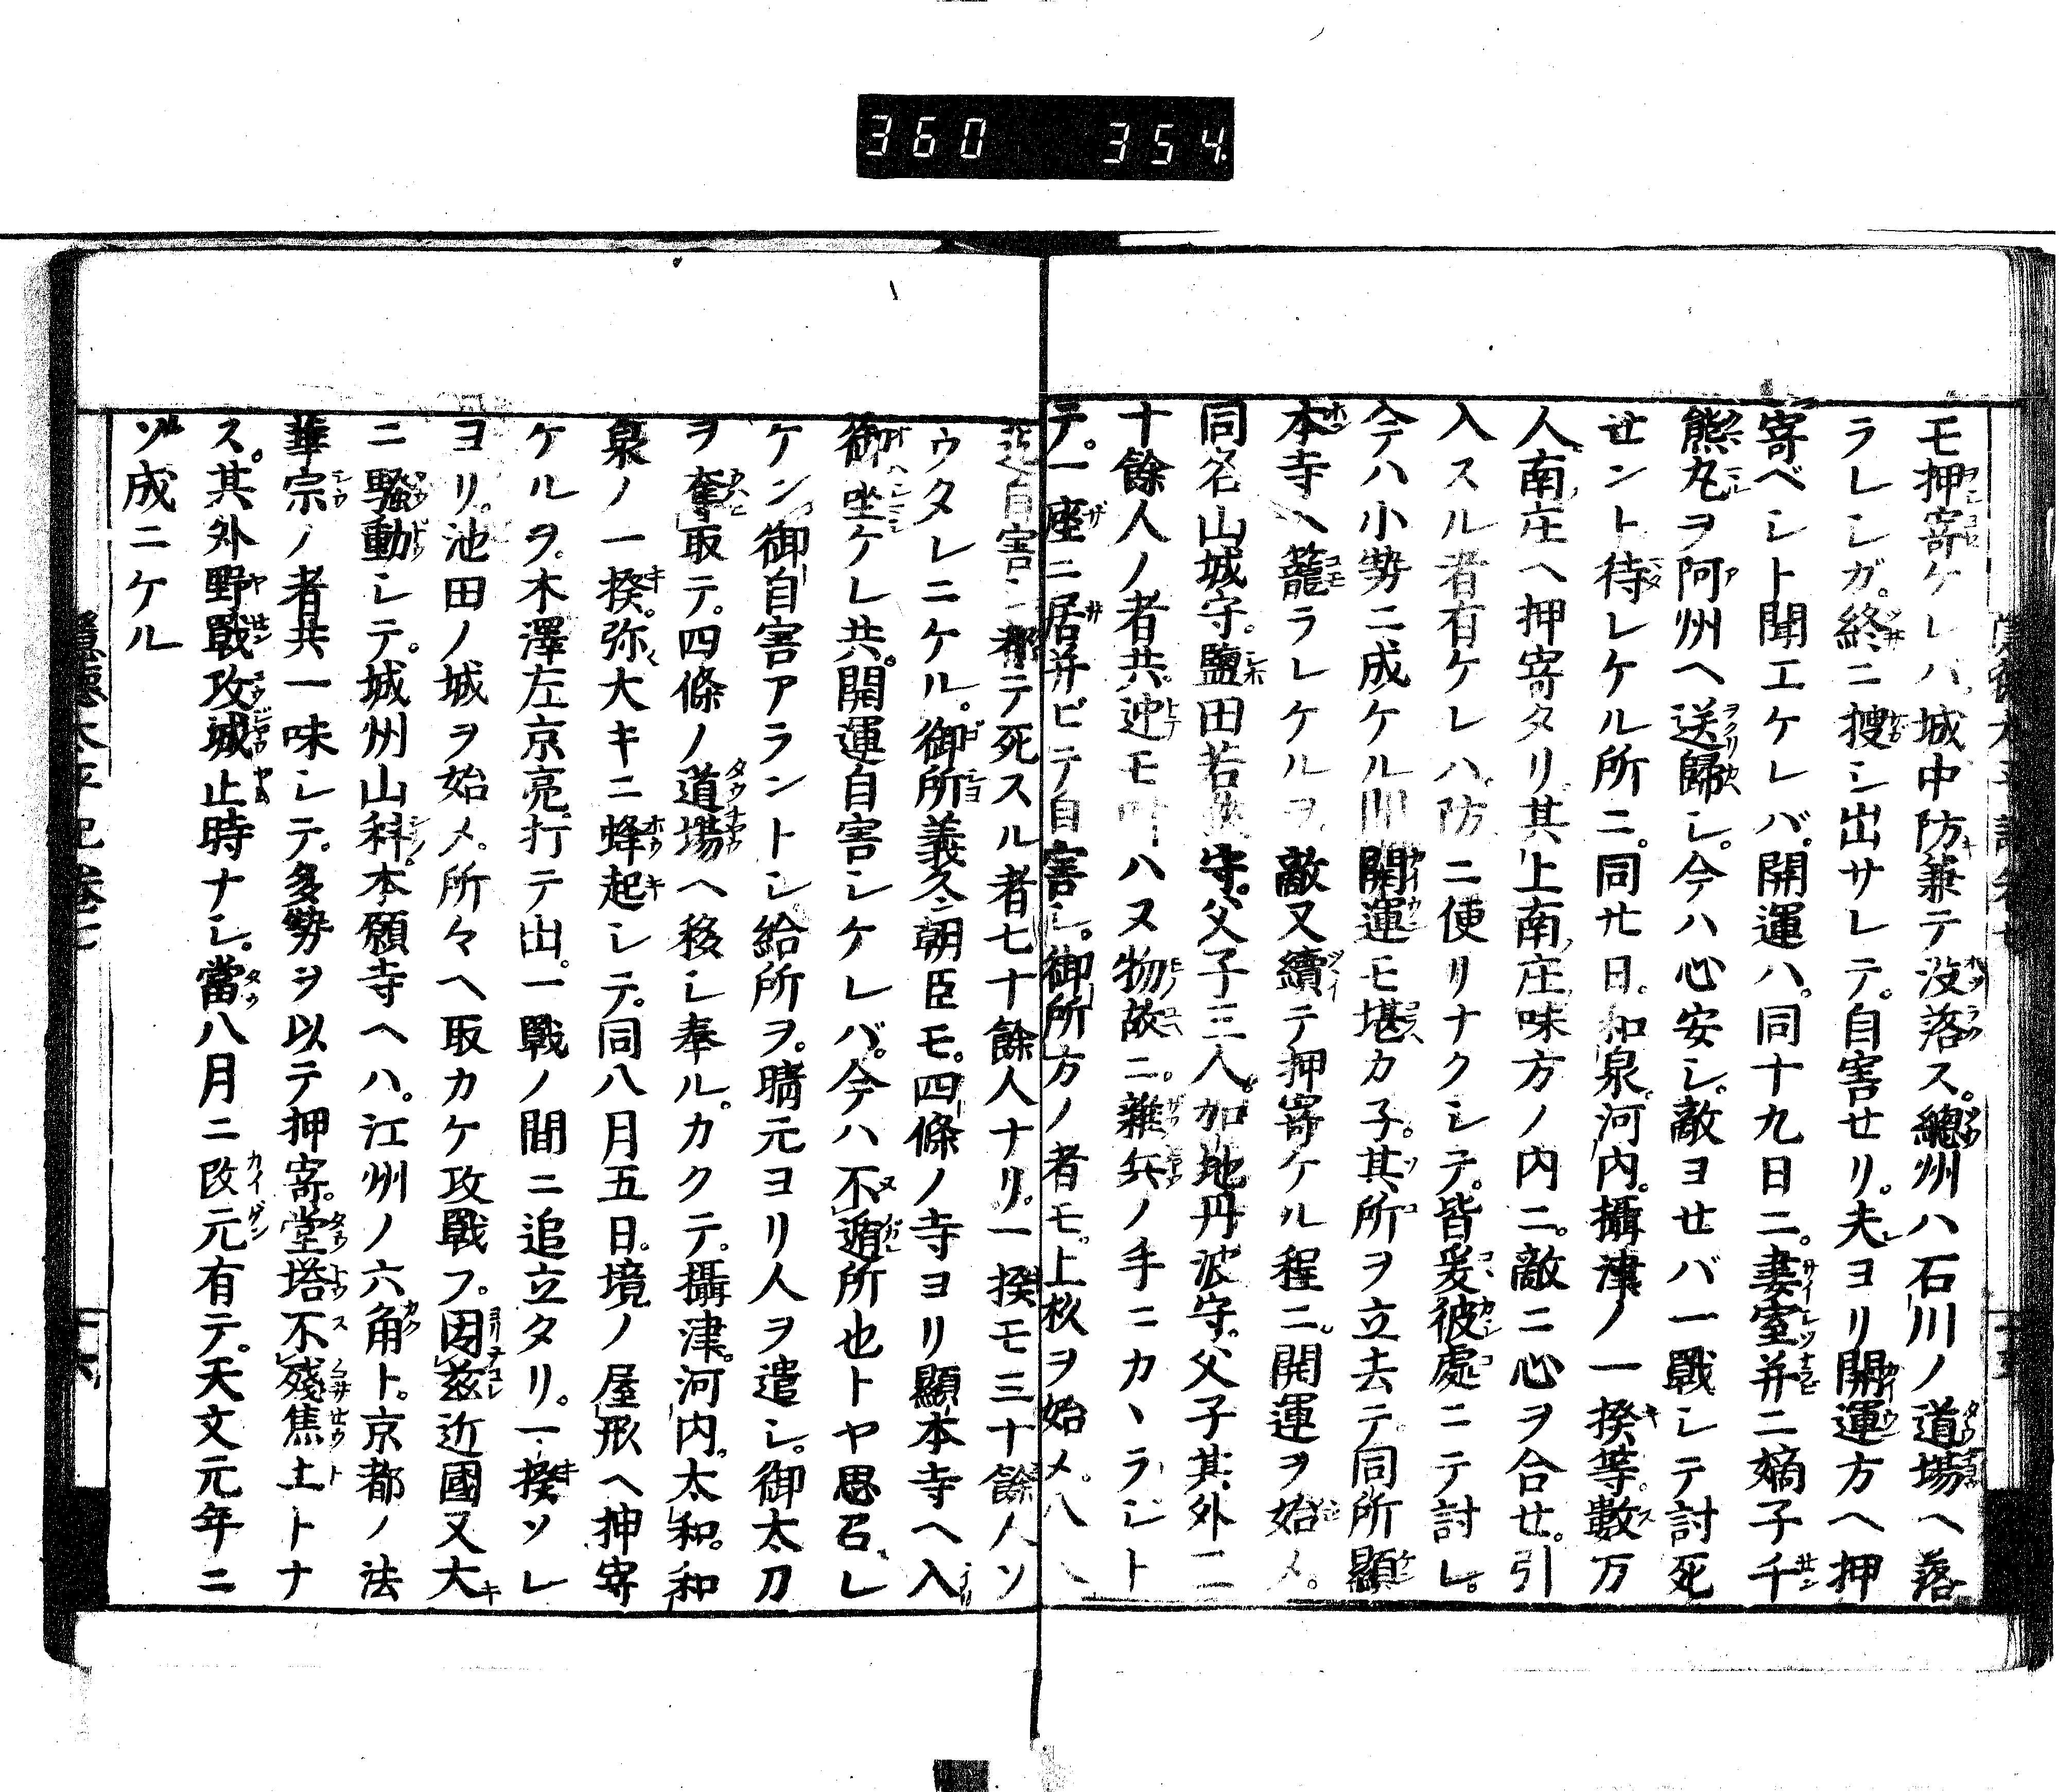 360 354
モ押寄ケレハ城中防兼テ没落ス。總州ハ石川ノ道場ヘ落
ラレシガ。終ニ捜シ出サレテ。自害せリ。夫ヨリ開運方ヘ押
寄ベシト聞エケレバ。開運ハ。同十九日ニ。妻室并ニ嫡子千
熊丸ヲ阿州ヘ送歸シ。今ハ心安シ。敵ヨせバ一戰シテ討死
せント待レケル所ニ。同廿日。和泉。河内。攝津ノ一揆等。數万
人南庄ヘ押寄タリ。其上南庄味方ノ内ニ。敵ニ心ヲ合せ。引
入スル者有ケレハ。防ニ便リナクシテ。皆爰彼處ニテ討レ。
今ハ小勢ニ成ケル川開運モ堪カ子。其所ヲ立去テ。同所顯
本寺ヘ籠ラレケルヲ。敵又續テ押寄ケル程ニ。開運ヲ始メ。
同名山城守。鹽田若守。父子三人。加地丹波守。父子其外二
十餘人ノ者共。迚モ叶ハヌ物故ニ。雜兵ノ手ニカヽラシト
テ。一座ニ居并ビテ自害シ。御所方ノ者モ。上杦ヲ始メ。八
自害シ都テ死スル者七十餘人ナリ。一揆モ三十餘人ソ
ウタレニケル。御所義久朝臣モ。四條ノ寺ヨリ顯本寺ヘ入
御坐ケレ共。開運自害シケレバ。今ハ不遁所也トヤ思召レ
ケン御自害アラントシ給所ヲ。晴元ヨリ人ヲ遣シ。御太刀
ヲ奪取テ。四條ノ道場ヘ移シ奉ル。カクテ。攝津。河内。太和。和
泉ノ一揆。弥大キニ蜂起シテ。同八月五日。境ノ屋形ヘ押寄
ケルヲ。木澤左京亮。打テ出。一戰ノ間ニ追立タリ。一揆ソレ
ヨリ。池田ノ城ヲ始メ。所々ヘ取カケ攻戰フ。因茲近國又大
ニ騷動シテ。城州山科。本願寺ヘハ。江州ノ六角ト。京都ノ法
華宗ノ者共一味シテ。多勢ヲ以テ押寄。堂塔不殘焦土トナ
ス。其外野戰攻城止時ナシ。當八月ニ改元有テ。天文元年ニ
ゾ成ニケル